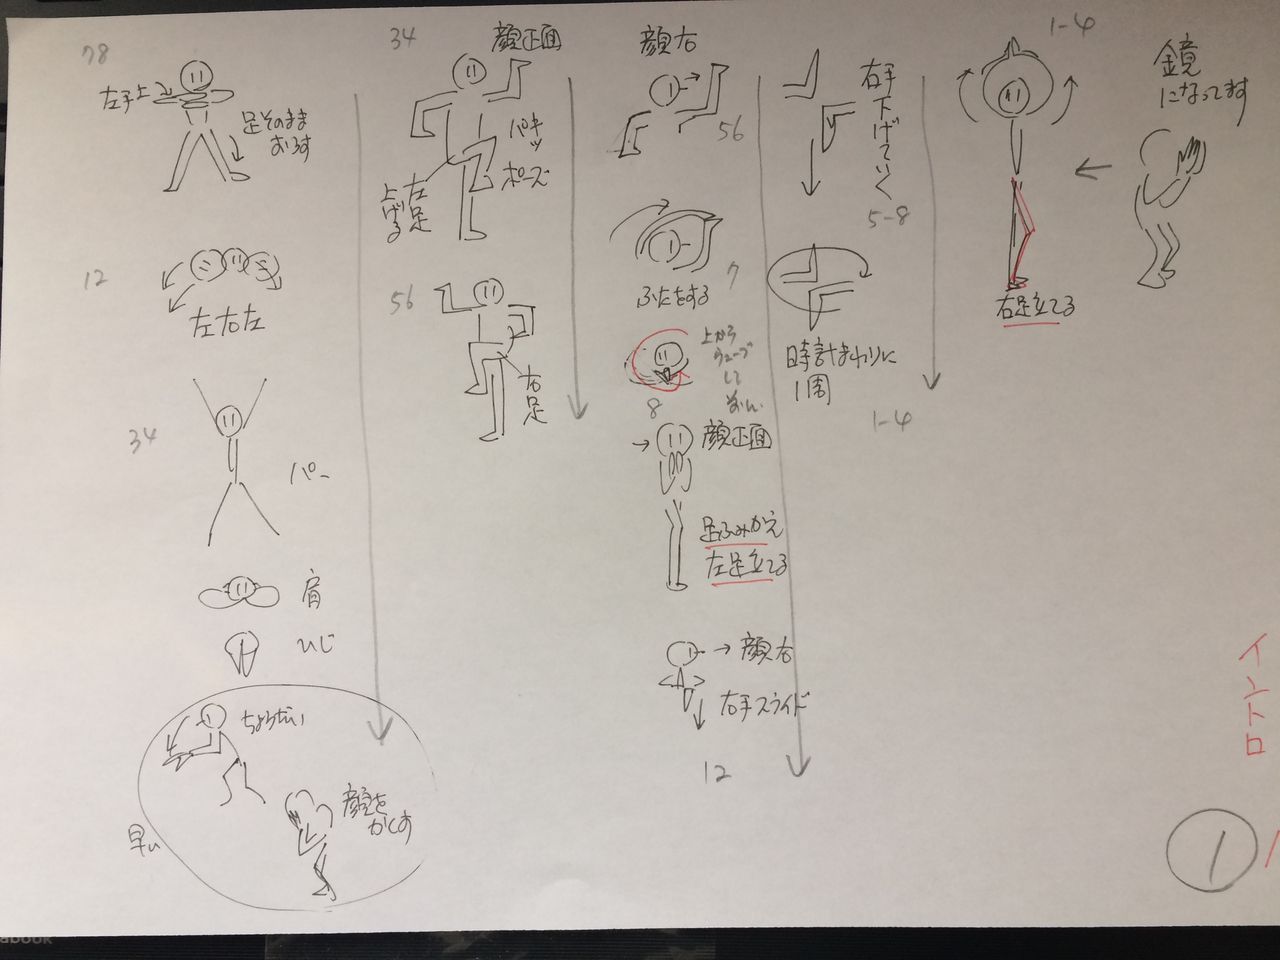 イントロ
1
鏡
になってます
1-4
右足立てる
右手
下げていく
5-8
時計まわりに
1周
1-4
顔右
56
ふたをする
7
上から
して
8
顔正面
足ふみかえ
左足立てる
→顔右
右手スライド
12
34
顔正面
バキッ
ポーズ
左足
上げる
56
右足
78
左手上
足そのまま
おろす
12
左右左
34
パー
肩
ひじ
ちょうだい
顔を
かくす
早い
abook